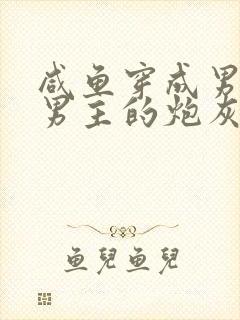 咸鱼穿成男
男主的炮灰
鱼兒鱼兒